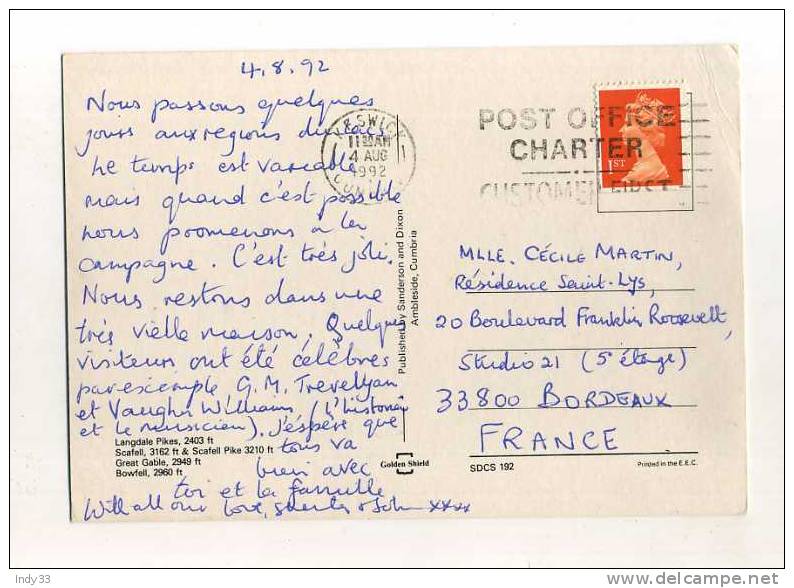 4.8.92
Nous passons quelques
jours aux regions du lacs.
Le temps est variable
mais quand c'est possible
nous promenons a la
campagne. C'est très joli.
Nous restons dans une
très vielle maison, Quelques
visiteurs ont été célèbres
par exemple G. M. Trevellyan
et Vaughn Williams (L'historien
et le musicien). J'éspère que
tous va
bien avec
toi et la famille
With all our love, & John xxxx
Langdale Pikes, 2403 ft
Scafell, 3162 ft & Scafell Pike 3210 ft
Great Gable, 2949 ft
Bowfell, 2960 ft
Published by Sanderson and Dixon
Ambleside, Cumbria
Golden Shield
KESWICK
11 AM
4 AUG
1992
POST OFFICE
CHARTER
CUSTOMER FIRST
1ST
MLLE. CÉCILE MARTIN,
Résidence Saint-Lys,
20 Boulevard Franklin Roosevelt,
Studio 21 (5e étage)
33800 BORDEAUX
FRANCE
SDCS 192
Printed in the E.E.C.
Indy33
delcampe.net